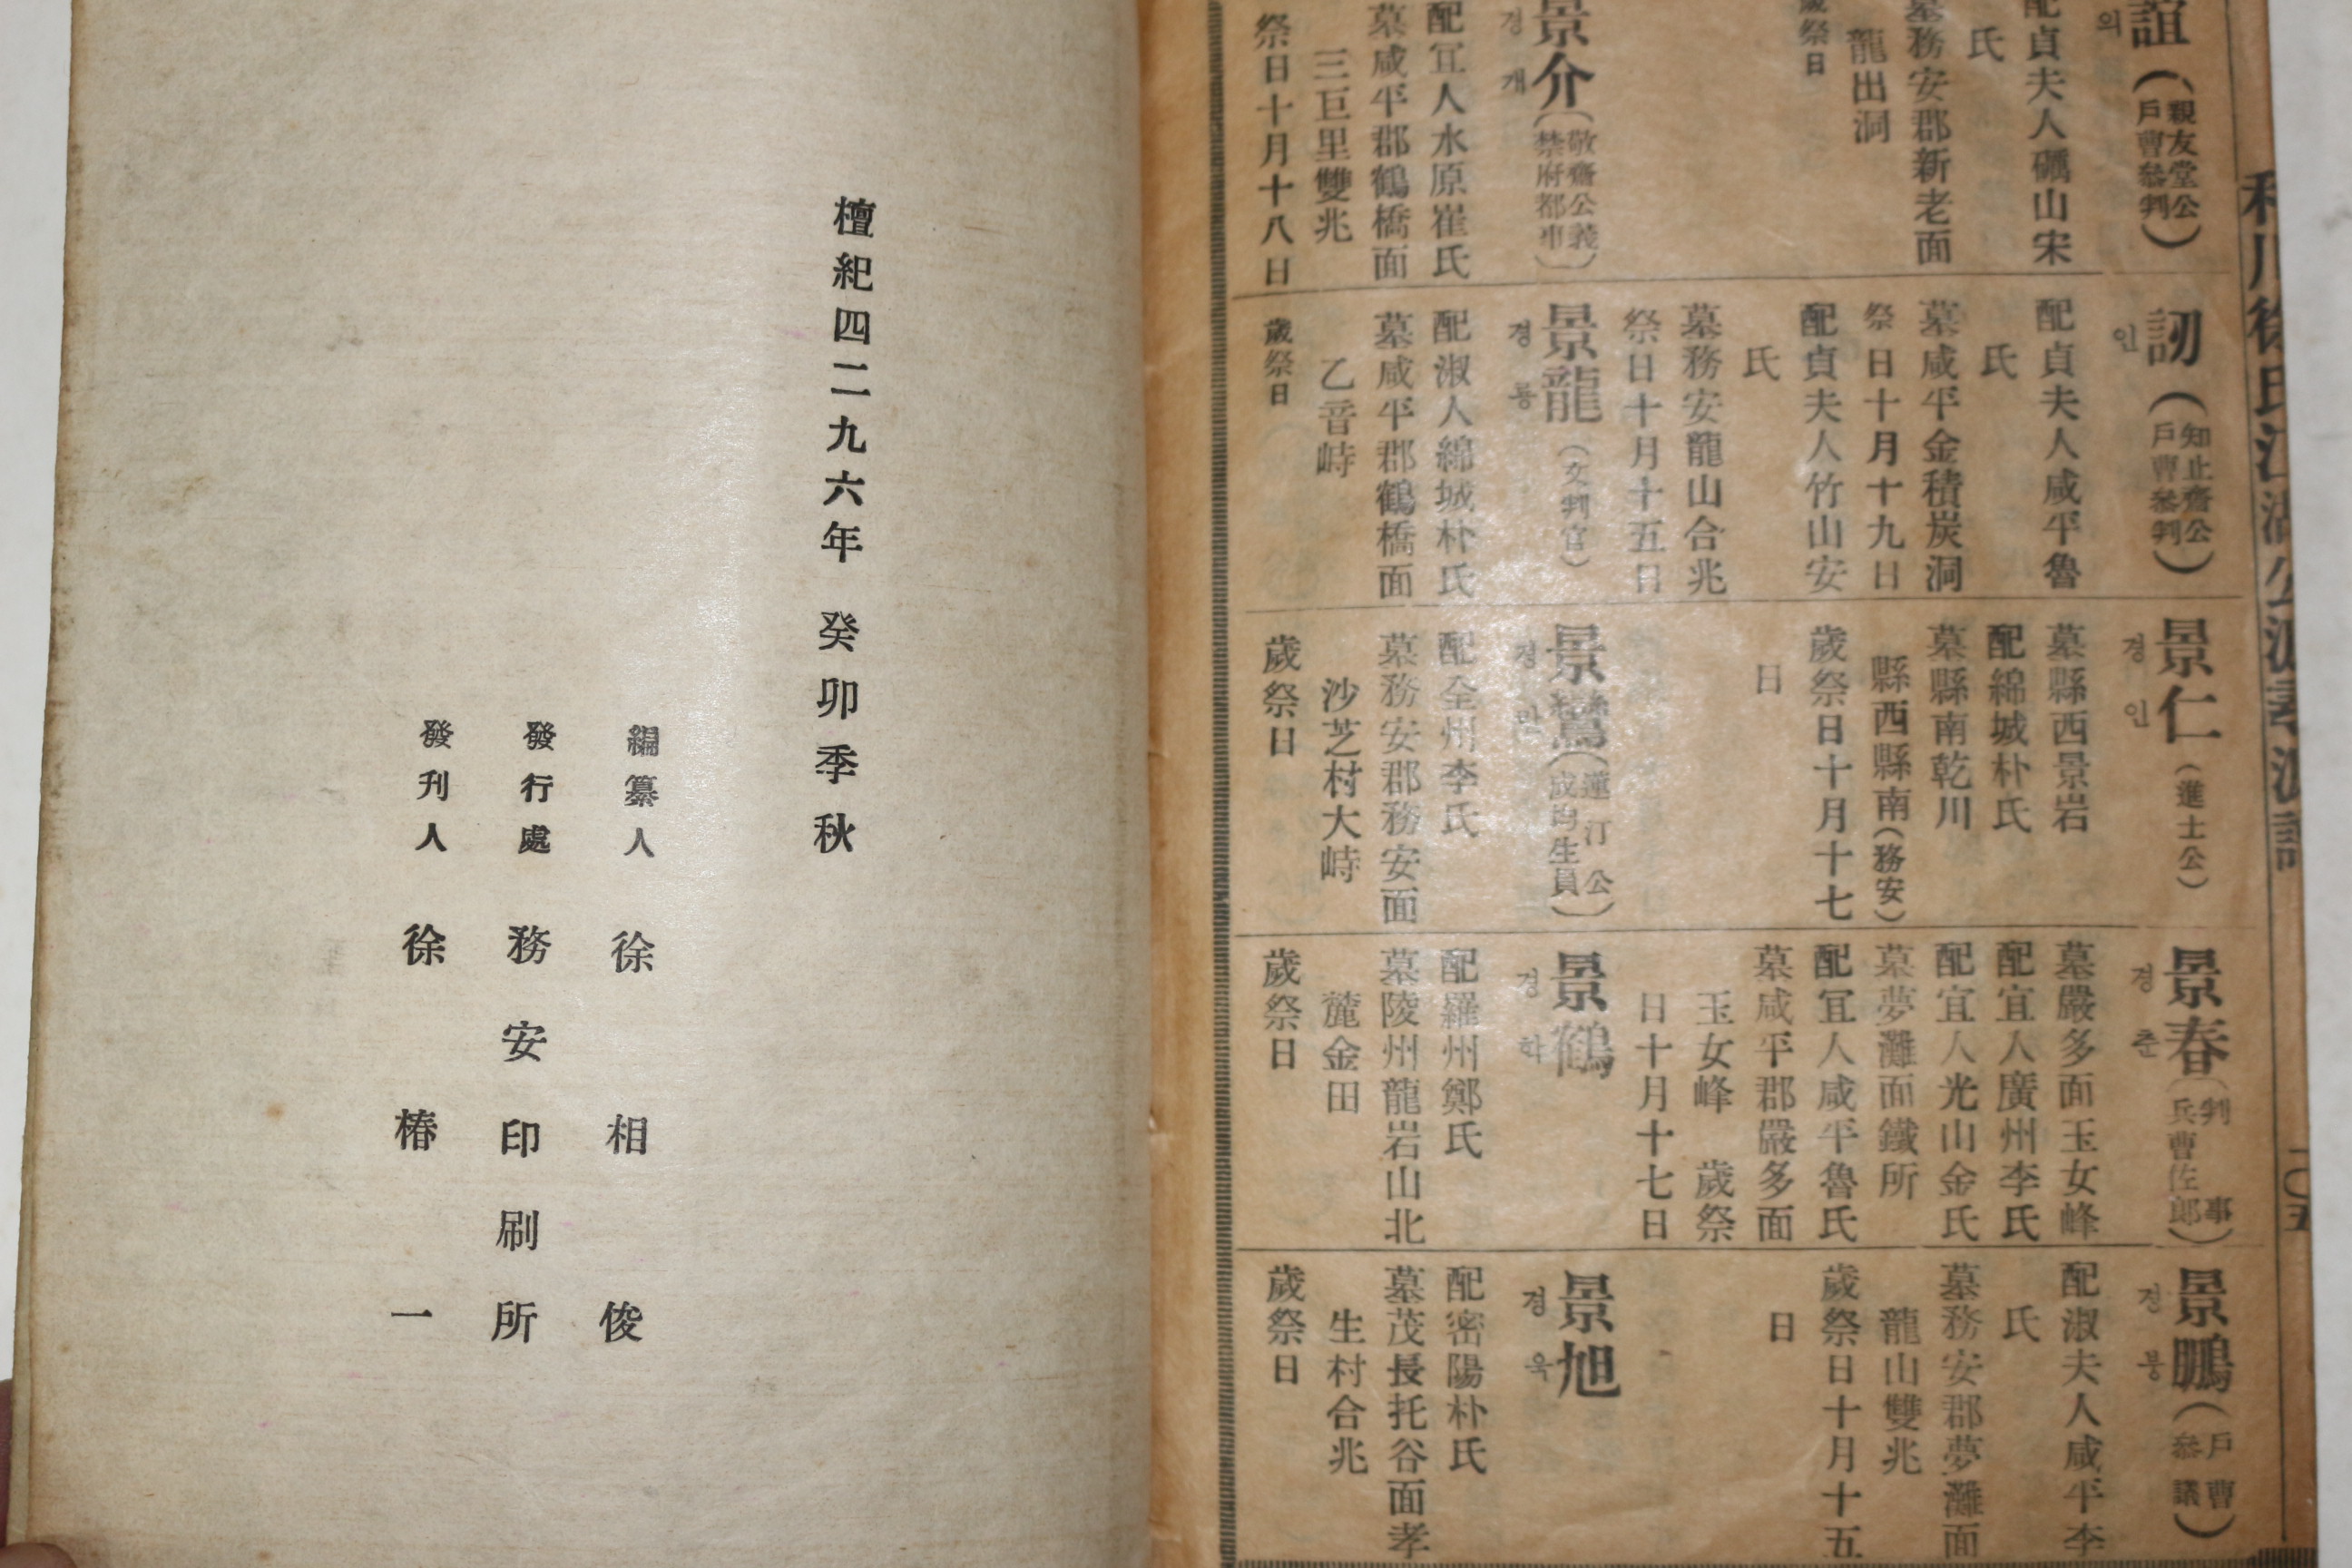 利川徐氏江湖公派尋源譜
一〇五
誼
의
(親友堂公
戶曹參判)
配貞夫人礪山宋
氏
墓務安郡新老面
龍出洞
歲祭日
景介
경개
(敬齋公義
禁府都事)
配宜人水原崔氏
墓咸平郡鶴橋面
三巨里雙兆
祭日十月十八日
訒
인
(知止齋公
戶曹參判)
配貞夫人咸平魯
氏
墓咸平金積炭洞
祭日十月十九日
配貞夫人竹山安
氏
墓務安龍山合兆
祭日十月十五日
景龍
경룡
(女判官)
配淑人綿城朴氏
墓咸平郡鶴橋面
乙音峙
歲祭日
景仁
경인
(進士公)
墓縣西景岩
配綿城朴氏
墓縣南乾川
縣西縣南(務安)
歲祭日十月十七
日
景鸞
경란
(蓮汀公
成均生員)
配全州李氏
墓務安郡務安面
沙芝村大峙
歲祭日
景春
경춘
(判事
兵曹佐郎)
墓嚴多面玉女峰
配宜人廣州李氏
配宜人光山金氏
墓夢灘面鐵所
配宜人咸平魯氏
墓咸平郡嚴多面
玉女峰 歲祭
日十月十七日
景鶴
경학
配羅州鄭氏
墓陵州龍岩山北
麓金田
歲祭日
景鵬
경붕
(戶曹
參議)
配淑夫人咸平李
氏
墓務安郡夢灘面
龍山雙兆
歲祭日十月十五
日
景旭
경욱
配密陽朴氏
墓茂長托谷面孝
生村合兆
歲祭日
檀紀四二九六年 癸卯季秋
編纂人 徐相俊
發行處 務安印刷所
發刊人 徐椿一